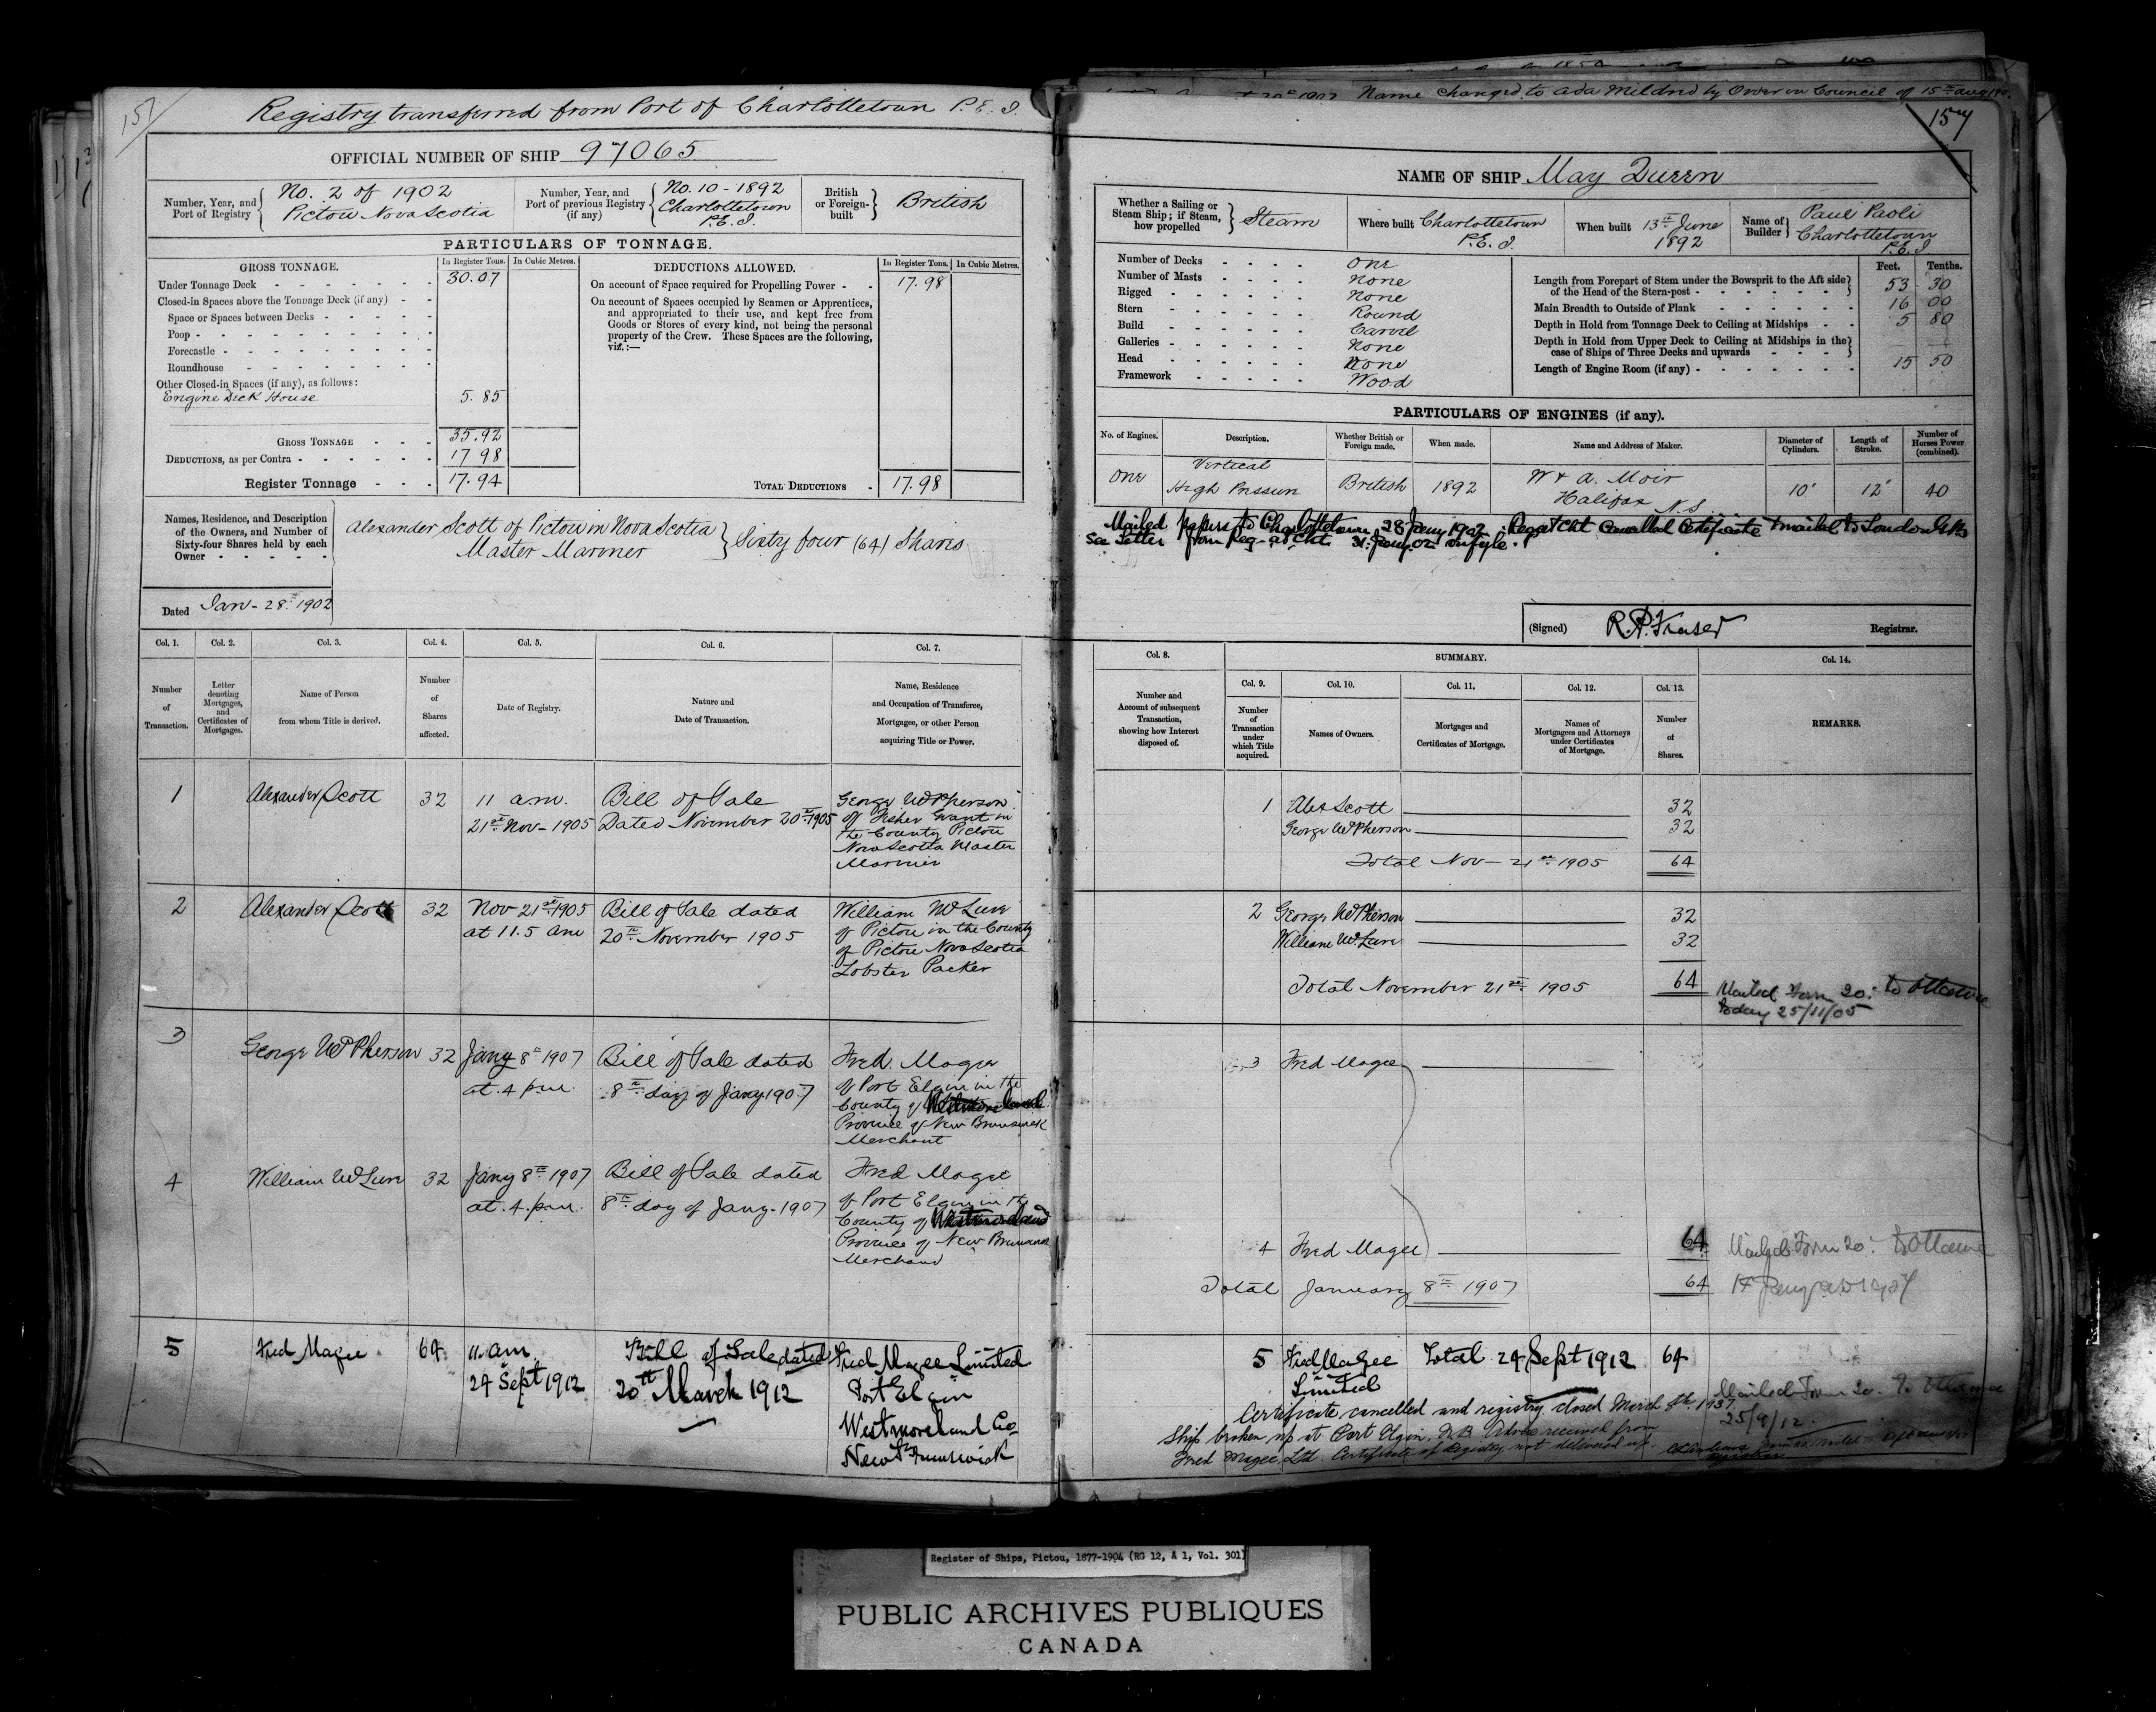 157
Registry transferred from Port of Charlottetown P.E.I.
OFFICIAL NUMBER OF SHIP 97065
Number, Year, and Port of Registry
No. 2 of 1902
Pictou Nova Scotia
Number, Year, and Port of previous Registry (if any)
No. 10 - 1892
Charlottetown
P.E.I.
British or Foreign-built
British
PARTICULARS OF TONNAGE.
GROSS TONNAGE.
In Register Tons.
In Cubic Metres.
DEDUCTIONS ALLOWED.
In Register Tons.
In Cubic Metres.
Under Tonnage Deck 30.07
Closed-in Spaces above the Tonnage Deck (if any)
Space or Spaces between Decks
Poop
Forecastle
Roundhouse
Other Closed-in Spaces (if any), as follows:
Engine Deck House 5.85
GROSS TONNAGE 35.92
DEDUCTIONS, as per Contra 17 98
Register Tonnage 17.94
On account of Space required for Propelling Power 17.98
On account of Spaces occupied by Seamen or Apprentices,
and appropriated to their use, and kept free from
Goods or Stores of every kind, not being the personal
property of the Crew. These Spaces are the following,
viz.:—
TOTAL DEDUCTIONS 17.98
Names, Residence, and Description
of the Owners, and Number of
Sixty-four Shares held by each
Owner
Alexander Scott of Pictou in Nova Scotia
Master Mariner
Sixty four (64) Shares
Dated Jan - 28th 1902
Col. 1. Col. 2. Col. 3. Col. 4. Col. 5. Col. 6. Col. 7.
Number of Transaction.
Letter denoting Mortgages, and Certificates of Mortgages.
Name of Person from whom Title is derived.
Number of Shares affected.
Date of Registry.
Nature and Date of Transaction.
Name, Residence and Occupation of Transferee, Mortgagee, or other Person acquiring Title or Power.
1 Alexander Scott 32
11 a.m.
21st Nov - 1905
Bill of Sale
Dated November 20th 1905
George McPherson
of Fisher Grant in
the County Pictou
Nova Scotia Master
Mariner
2 Alexander Scott 32
Nov 21st 1905
at 11.5 am
Bill of Sale dated
20th November 1905
William
of Pictou in the County
of Pictou Nova Scotia
Lobster Packer
3 George McPherson 32
Jany 8th 1907
at 4 p.m.
Bill of Sale dated
8th day of Jany 1907
Fred Magee
of Port Elgin in the
County of Westmoreland
Province of New Brunswick
Merchant
4 William 32
Jany 8th 1907
at 4. p.m.
Bill of Sale dated
8th day of Jany - 1907
Fred Magee
of Port Elgin in the
County of Westmoreland
Province of New Brunswick
Merchant
5 Fred Magee 64
11 am
24 Sept 1912
Bill of Sale dated
20th March 1912
Fred Magee Limited
Port Elgin
Westmoreland Co
New Brunswick
Name changed to Ada Mildred by Order in Council of 15th Aug
157
NAME OF SHIP May Queen
Whether a Sailing or Steam Ship; if Steam, how propelled
Steam
Where built Charlottetown
P.E.I.
When built 13th June
1892
Name of Builder
Paul Paoli
Charlottetown
P.E.I.
Number of Decks One
Number of Masts None
Rigged None
Stern Round
Build Carvel
Galleries None
Head None
Framework Wood
Feet. Tenths.
Length from Forepart of Stem under the Bowsprit to the Aft side
of the Head of the Stern-post 53 30
Main Breadth to Outside of Plank 16 00
Depth in Hold from Tonnage Deck to Ceiling at Midships 5 80
Depth in Hold from Upper Deck to Ceiling at Midships in the
case of Ships of Three Decks and upwards
Length of Engine Room (if any) 15 50
PARTICULARS OF ENGINES (if any).
No. of Engines.
Description.
Whether British or Foreign made.
When made.
Name and Address of Maker.
Diameter of Cylinders.
Length of Stroke.
Number of Horses Power (combined).
One
Vertical
High Pressure
British
1892
W & A. Moir
Halifax N.S
10"
12"
40
Mailed papers to Charlottetown 28 Jany 1902. Regr at Cht Cancelled Certificate & mailed to London
See Letter from Reg. at Cht. 31 Jany 02 on fyle.
(Signed) R.P. Fraser Registrar.
Col. 8. SUMMARY. Col. 14.
Col. 9. Col. 10. Col. 11. Col. 12. Col. 13.
Number and Account of subsequent Transaction, showing how Interest disposed of.
Number of Transaction under which Title acquired.
Names of Owners.
Mortgages and Certificates of Mortgage.
Names of Mortgagees and Attorneys under Certificates of Mortgage.
Number of Shares.
REMARKS.
1 Alex Scott 32
George McPherson 32
Total Nov - 21st 1905 64
2 George McPherson 32
William 32
Total November 21st 1905 64
Mailed Form 20. to Ottawa
today 25/11/05
3 Fred Magee
4 Fred Magee 64
Total January 8th 1907 64
Mailed Form 20. to Ottawa
5 Fred Magee Total 24 Sept 1912 64
Limited
Mailed Form 20. to Ottawa
25/9/12.
Certificate cancelled and registry closed March 8th. 1937.
Ship broken up at Port Elgin, N.B. Advice received from
Fred Magee Ltd. Certificate of Registry not delivered up.
Register of Ships, Pictou, 1877-1904 (RG 12, A 1, Vol. 301)
PUBLIC ARCHIVES PUBLIQUES
CANADA